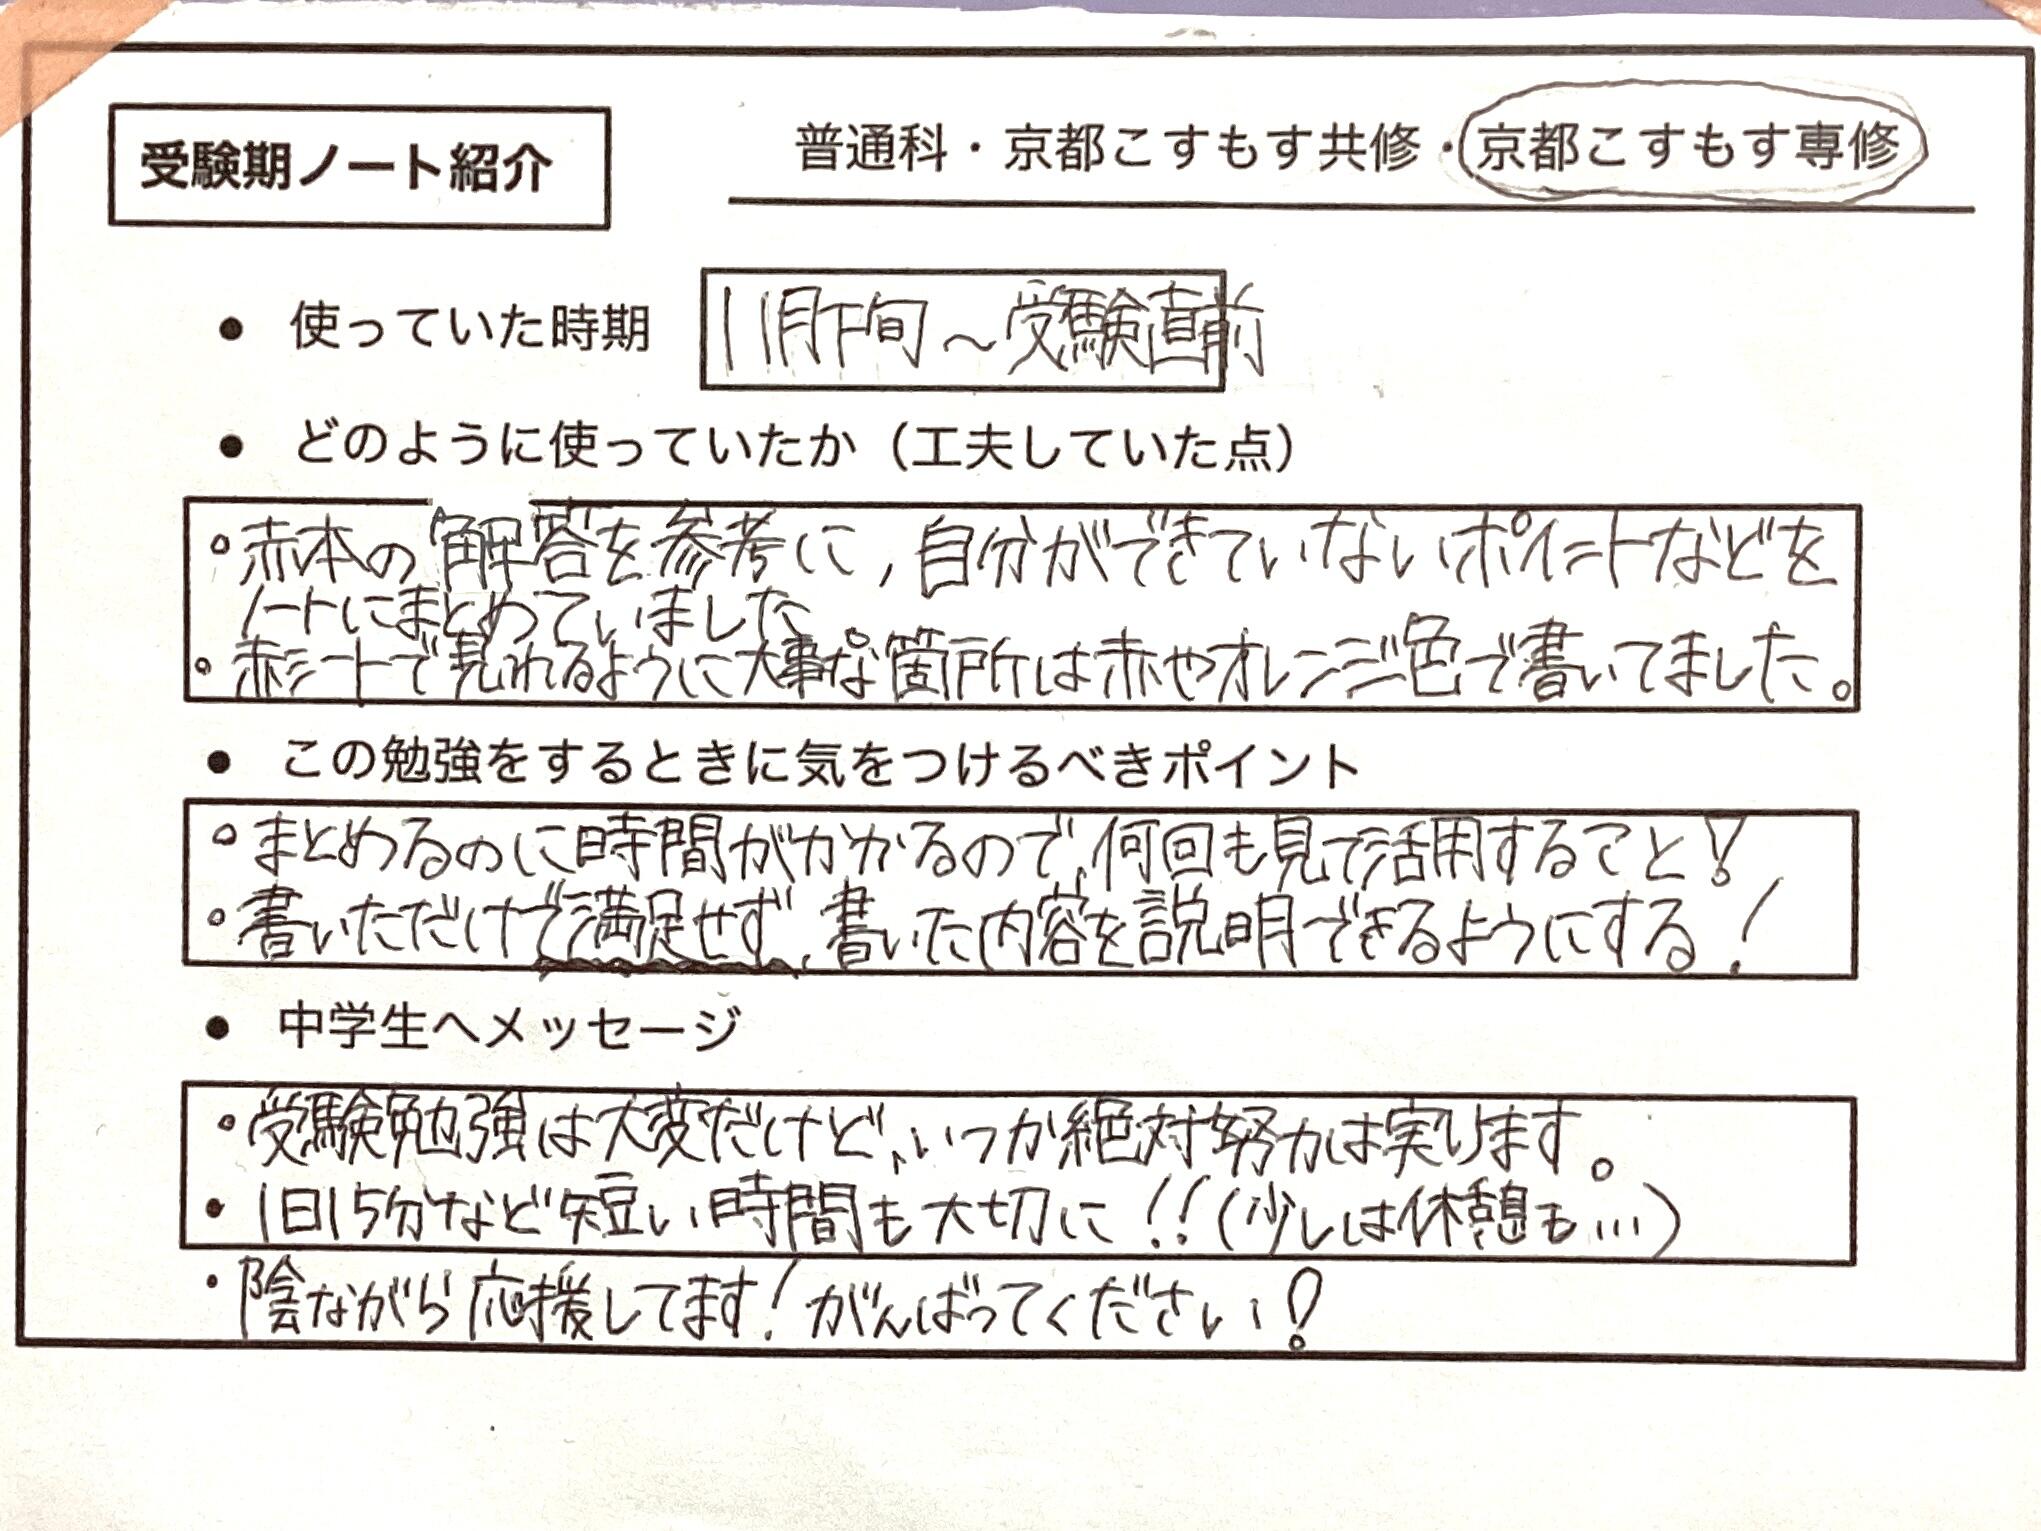 受験期ノート紹介
普通科・京都こすもす共修・京都こすもす専修
● 使っていた時期 11月下旬〜受験直前
● どのように使っていたか（工夫していた点）
○ 赤本の解答を参考に，自分ができていないポイントなどを
ノートにまとめていました。
○ 赤シートで見れるように大事な箇所は赤やオレンジ色で書いてました。
● この勉強をするときに気をつけるべきポイント
○ まとめるのに時間がかかるので、何回も見て活用すること！
○ 書いただけで満足せず、書いた内容を説明できるようにする！
● 中学生へメッセージ
・受験勉強は大変だけど、いつか絶対努力は実ります。
・1日15分など短い時間も大切に！！（少しは休憩も…）
・陰ながら応援してます！がんばってください！